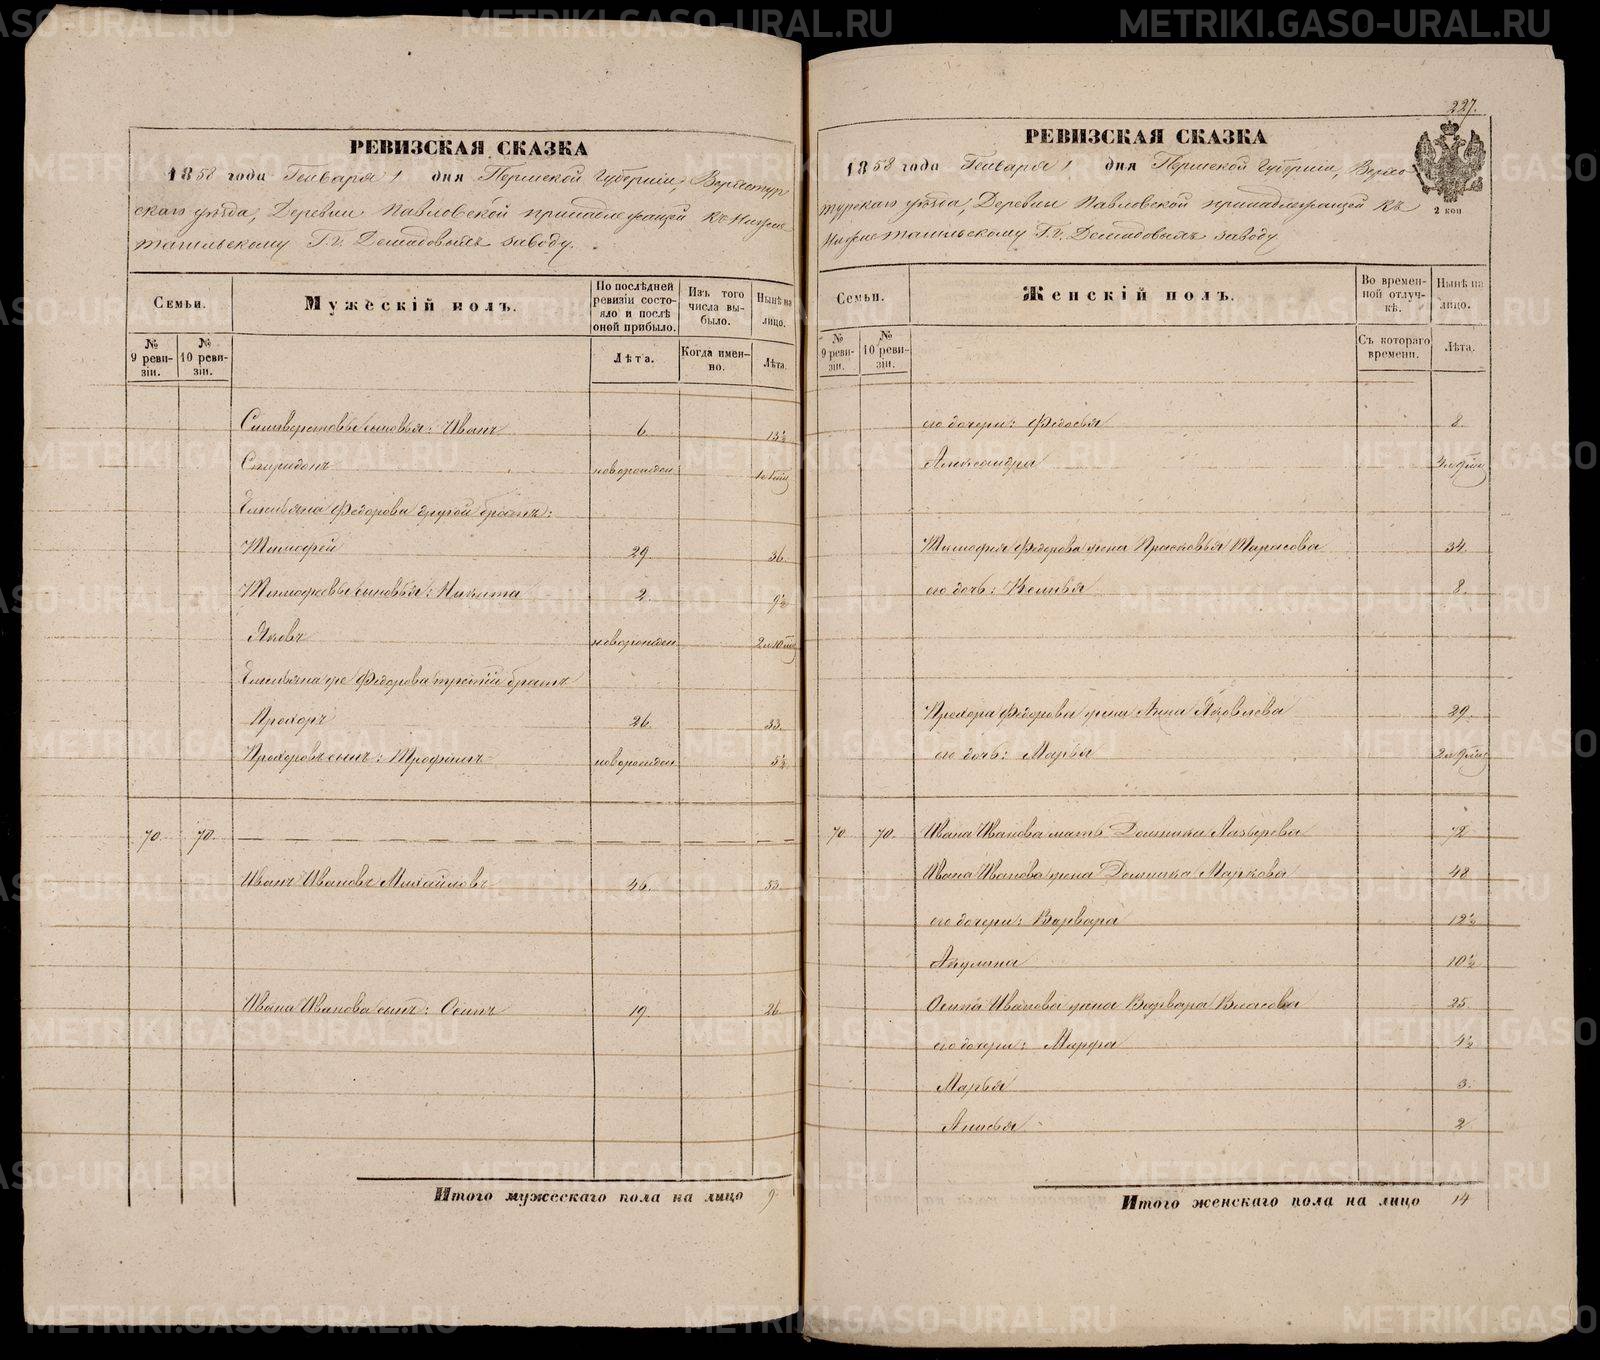 РЕВИЗСКАЯ СКАЗКА
1858 года Генваря 1 дня Пермской Губерніи, Верхотур
скаго уѣзда, Деревни Павловской принадлежащей къ Нижне
тагильскому Г.г. Демидовымъ заводу.
Семьи.
№ 9 ревизіи.
№ 10 ревизіи.
Мужескій полъ.
По послѣдней ревизіи состояло и послѣ оной прибыло.
Лѣта.
Изъ того числа выбыло.
Когда именно.
Нынѣ на лицо.
Лѣта.
Силиверстовы сыновья: Иванъ 6. 13½
Спиридонъ новорожден
Емельяна Федорова другой братъ:
Тимофей 29 36.
Тимофеевы сыновья: Никита 2. 9½
Яковъ новорожден 2 л 10 мц
Емельяна же Федорова третій братъ
Прохоръ 26 33.
Прохоровъ сынъ: Трофимъ новорожден 5½
70. 70.
Иванъ Ивановъ Михайловъ 46. 53.
Ивана Иванова сынъ: Осипъ 19. 26.
Итого мужескаго пола на лицо 9.
227.
РЕВИЗСКАЯ СКАЗКА
1858 года Генваря 1 дня Пермской Губерніи, Верхо
турскаго уѣзда, Деревни Павловской принадлежащей къ
Нижнетагильскому Г.г. Демидовымъ заводу
2 коп
Семьи.
№ 9 ревизіи.
№ 10 ревизіи.
Женскій полъ.
Во временной отлучкѣ.
Съ котораго времени.
Нынѣ на лицо.
Лѣта.
его дочери: Федосья 8.
Александра
Тимофея Федорова жена Прасковья Тарасова 34.
его дочь: 8.
Прохора Федорова жена Анна Яковлева 29.
его дочь: Марья 2 л 9 мц
70. 70. Ивана Иванова мать Домника Лазарева 72
Ивана Иванова жена Домника Маркова 48
его дочери: Варвара 12½
Акулина 10½
Осипа Иванова жена Варвара Власова 25.
его дочери: Марфа 4½
Марья 3.
Анисья 2
Итого женскаго пола на лицо 14
METRIKI.GASO-URAL.RU